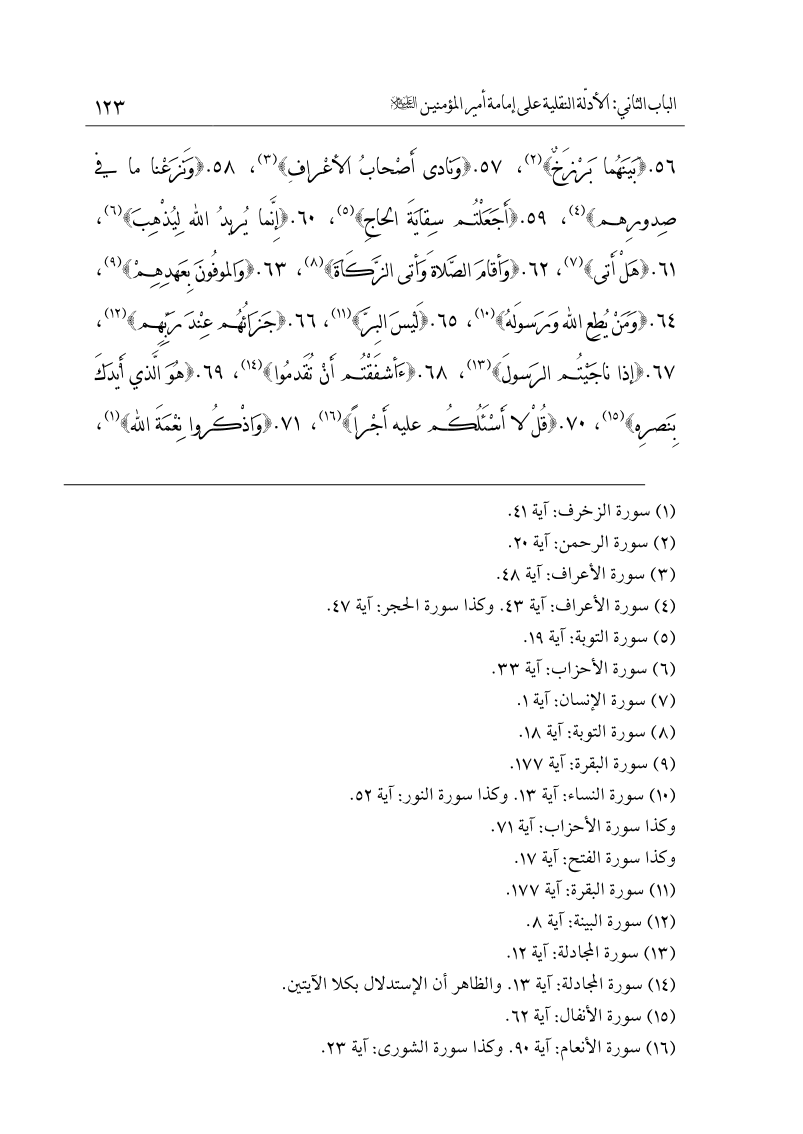 الباب الثاني: الأدلّة النقلية على إمامة أمير المؤمنين ١٢٣
٥٦.﴿بَيْنَهُما بَرْزَخٌ﴾(٢)، ٥٧.﴿وَنادى أَصْحابُ الأعْرافِ﴾(٣)، ٥٨.﴿وَنَزَعْنا ما في
صدورهم﴾(٤)، ٥٩.﴿أَجَعَلْتُم سِقايَةَ الحاجِ﴾(٥)، ٦٠.﴿إنَّما يُريدُ الله لِيُذْهِبَ﴾(٦)،
٦١.﴿هَلْ أَتى﴾(٧)، ٦٢.﴿وَأقامَ الصَّلاةَ وَأتى الزَّكاةَ﴾(٨)، ٦٣.﴿وَالموفُونَ بِعَهدِهِمْ﴾(٩)،
٦٤.﴿وَمَنْ يُطِعِ الله وَرَسولَهُ﴾(١٠)، ٦٥.﴿لَيْسَ البِرَّ﴾(١١)، ٦٦.﴿جَزَائُهُم عِنْدَ رَبِّهِم﴾(١٢)،
٦٧.﴿إذا ناجَيْتُم الرَسولَ﴾(١٣)، ٦٨.﴿ءَأشفَقْتُم أَنْ تُقَدمُوا﴾(١٤)، ٦٩.﴿هُوَ الَّذي أَيدَكَ
بِنَصرِهِ﴾(١٥)، ٧٠.﴿قُلْ لا أَسْئَلُكُم عليه أَجْراً﴾(١٦)، ٧١.﴿وَاذْكُروا نِعْمَةَ الله﴾(١)،
(١) سورة الزخرف: آية ٤١.
(٢) سورة الرحمن: آية ٢٠.
(٣) سورة الأعراف: آية ٤٨.
(٤) سورة الأعراف: آية ٤٣. وكذا سورة الحجر: آية ٤٧.
(٥) سورة التوبة: آية ١٩.
(٦) سورة الأحزاب: آية ٣٣.
(٧) سورة الإنسان: آية ١.
(٨) سورة التوبة: آية ١٨.
(٩) سورة البقرة: آية ١٧٧.
(١٠) سورة النساء: آية ١٣. وكذا سورة النور: آية ٥٢.
وكذا سورة الأحزاب: آية ٧١.
وكذا سورة الفتح: آية ١٧.
(١١) سورة البقرة: آية ١٧٧.
(١٢) سورة البينة: آية ٨.
(١٣) سورة المجادلة: آية ١٢.
(١٤) سورة المجادلة: آية ١٣. والظاهر أن الإستدلال بكلا الآيتين.
(١٥) سورة الأنفال: آية ٦٢.
(١٦) سورة الأنعام: آية ٩٠. وكذا سورة الشورى: آية ٢٣.